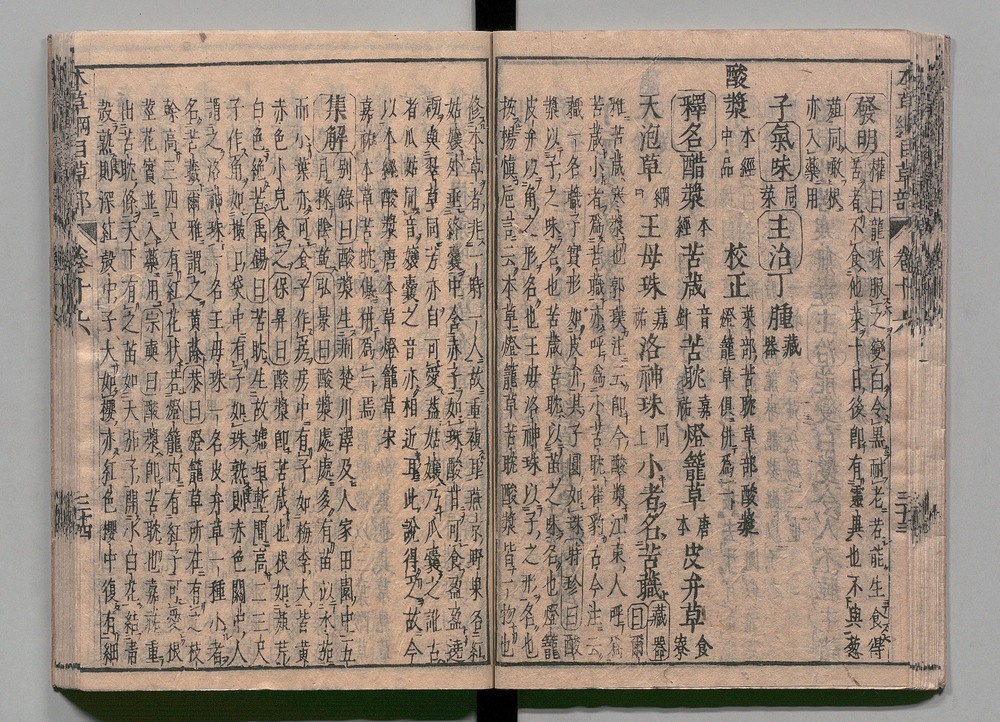 發明權曰龍珠服之變白令黑耐老若能生食得
苦者不食他菜十日後即有靈異也不與葱
薤同噉根
亦入藥用
子氣味同菜主治丁腫藏器
酸漿本經中品 校正菜部苦耽草部酸漿燈籠草俱併爲一
釋名醋漿本經苦葴音針苦耽嘉祐燈籠草唐本皮弁草食療
天泡草綱目王母珠嘉祐洛神珠同上小者名苦蘵藏器曰爾
雅苦葴寒漿也郭璞注云即今酸漿江東人呼爲
苦葴小者爲苦蘵亦呼爲小苦耽崔豹古今注云
蘵一名蘵子實形如皮弁其子圓如珠時珍曰
漿以子之味名也苦葴苦耽以苗之味名也燈籠
皮弁以角之形名也王母洛神珠以子之形名也
按楊慎巵言云本草燈籠草苦耽酸漿皆一物也
修本草者非一時一人故重複耳燕京野果名紅
姑孃外垂絳囊中含赤子如珠酸甘可食盈盈遶
砌與翠草同芳亦自可愛蓋姑孃乃瓜囊之訛古
者瓜姑同音孃囊之音亦相近耳此說得之故今
以本經酸漿唐本草燈籠草宋
嘉祐本草苦耽俱併爲一焉
集解别錄曰酸漿生荆楚川澤及人家田園中五
月採陰乾弘景曰酸漿處處多有苗似水茄
而小葉亦可食子作房房中有子如梅李大皆黄
赤色小兒食之保昇曰酸漿即苦葴也根如葅芹
白色絕苦禹錫曰苦耽生故墟垣塹間高二三尺
子作角如撮口袋中有子如珠熟則赤色關中人
謂之洛神珠一名王母珠一名皮弁草一種小者
名苦蘵爾雅謂之黄蒢恭曰燈籠草所在有之枝
幹高三四尺有紅花狀若燈籠内有紅子可愛根
莖花實並入藥用宗奭曰酸漿即苦耽也嘉祐重
出苦耽條天下有之苗如天茄子開小白花結青
殻熟則深紅殻中子大如櫻亦紅色櫻中復有細
本草綱目草部 卷十六 三十四
本草綱目草部 卷十六 三十三